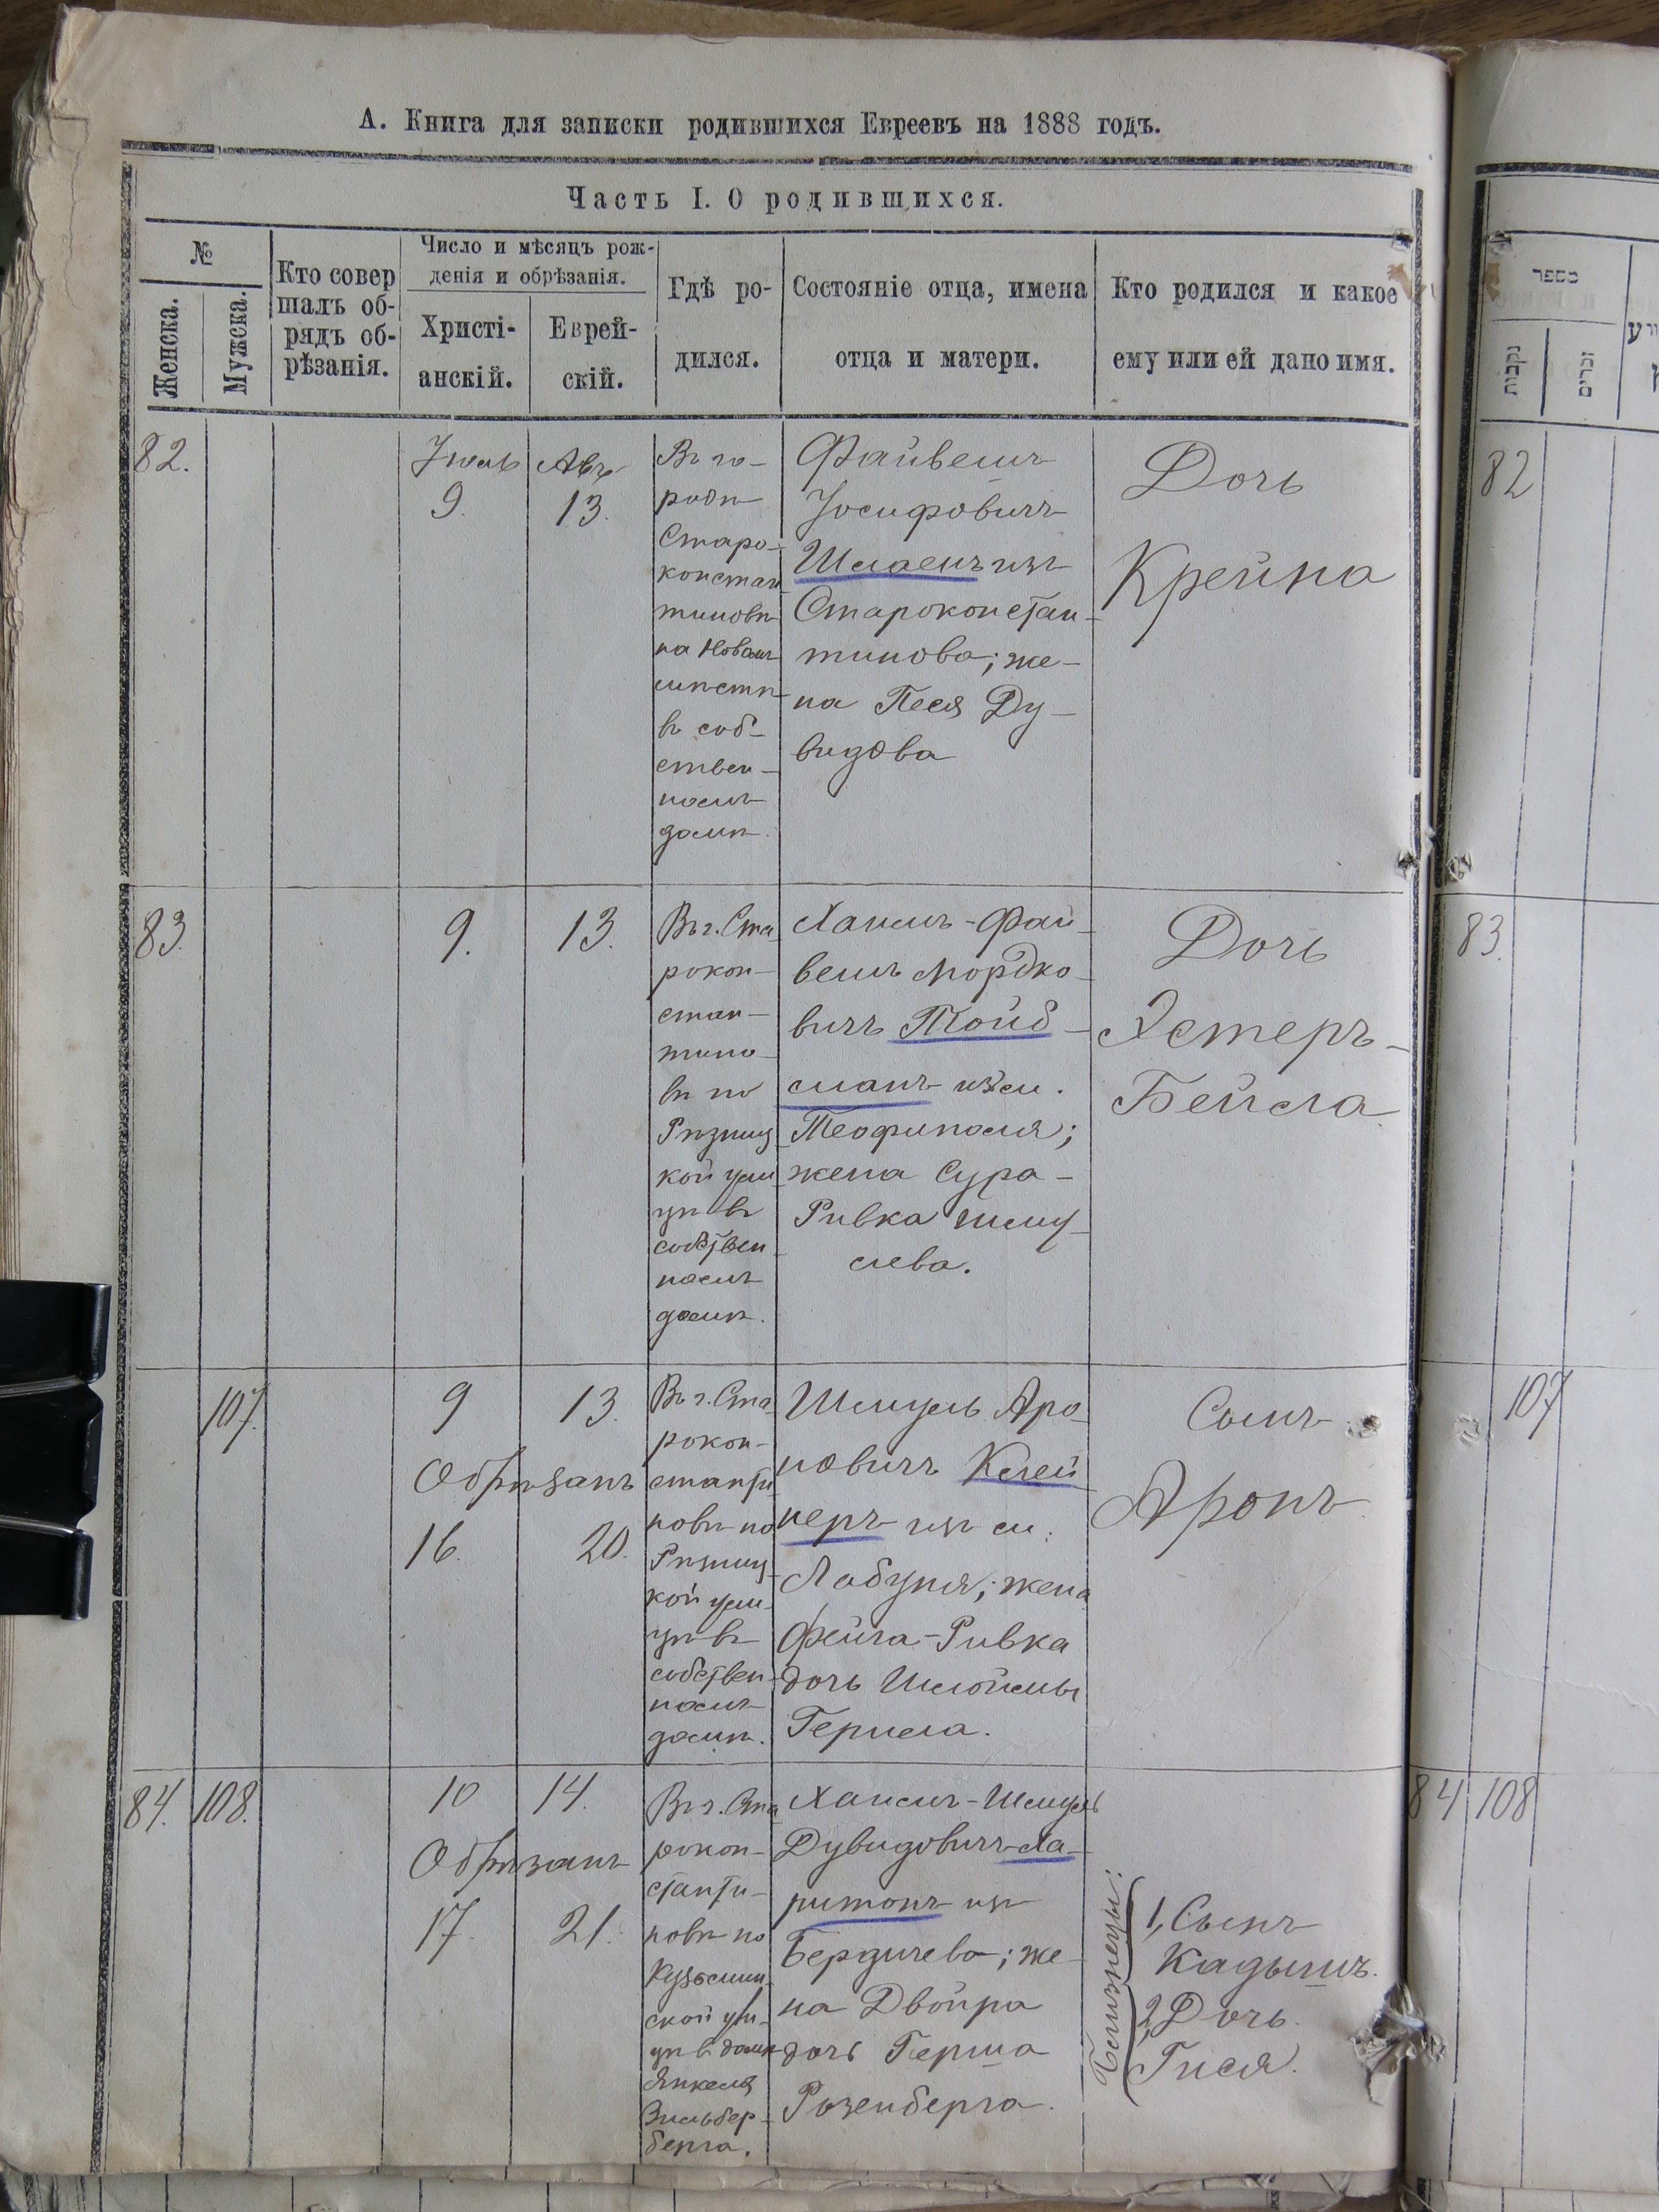 А. Книга для записки родившихся Евреевъ на 1888 годъ.
Часть I. О родившихся.
№
Женска.
Мужска.
Кто совер
шалъ об-
рядъ об-
рѣзанія.
Число и мѣсяцъ рож-
денія и обрѣзанія.
Христі-
анскій.
Еврей-
скій.
Гдѣ ро-
дился.
Состояніе отца, имена
отца и матери.
Кто родился и какое
ему или ей дано имя.
82.
Іюль
9.
Авъ
13.
Въ го-
родѣ
Старо-
констан
тиновѣ
на Новомъ
мѣстѣ
въ соб-
ствен-
номъ
домѣ.
Файвешъ
Іосифовичъ
изъ
Староконстан-
тинова; же-
на Песя Ду-
видова
Дочь
Крейна
83.
9.
13.
Въ г. Ста
рокон-
стан-
тино-
вѣ по
Рѣзниц
кой ули
цѣ въ
собствен
номъ
домѣ.
Хаимъ-Фай-
вешъ Мордко-
вичъ Тойб-
манъ изъ м.
Теофиполя;
жена Сура-
Ривка Шму-
лева.
Дочь
Эстеръ-
Бейла
107.
9
13.
Обрѣзанъ
16.
20.
Въ г. Ста
рокон-
станти
новѣ по
Рѣзниц-
кой ули-
цѣ въ
собствен-
номъ
домѣ.
Шмуль Аро-
новичъ Клей
неръ изъ м.
Лабуня; жена
Фейга-Ривка
дочь Шлоймы
Гермела.
Сынъ
Аронъ
84.
108.
10
14.
Обрѣзанъ
17.
21.
Въ г. Ста
рокон-
станти-
новѣ по
Кузьмин-
ской ули-
цѣ въ домѣ
Янкеля
Зильбер-
берга.
Хаимъ-Шмуль
Дувидовичъ Ха-
ритонъ изъ
Бердичева; же-
на Двойра
дочь Герша
Розенберга.
Близнецы:
1, Сынъ
Кадышъ.
2, Дочь
Гися.
מספר
נקבות
זכרים
82
83.
107
84
108